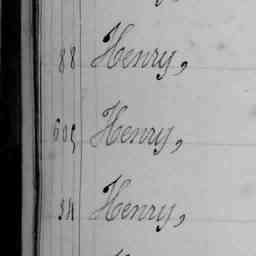 88 Henry,
605 Henry,
34 Henry,